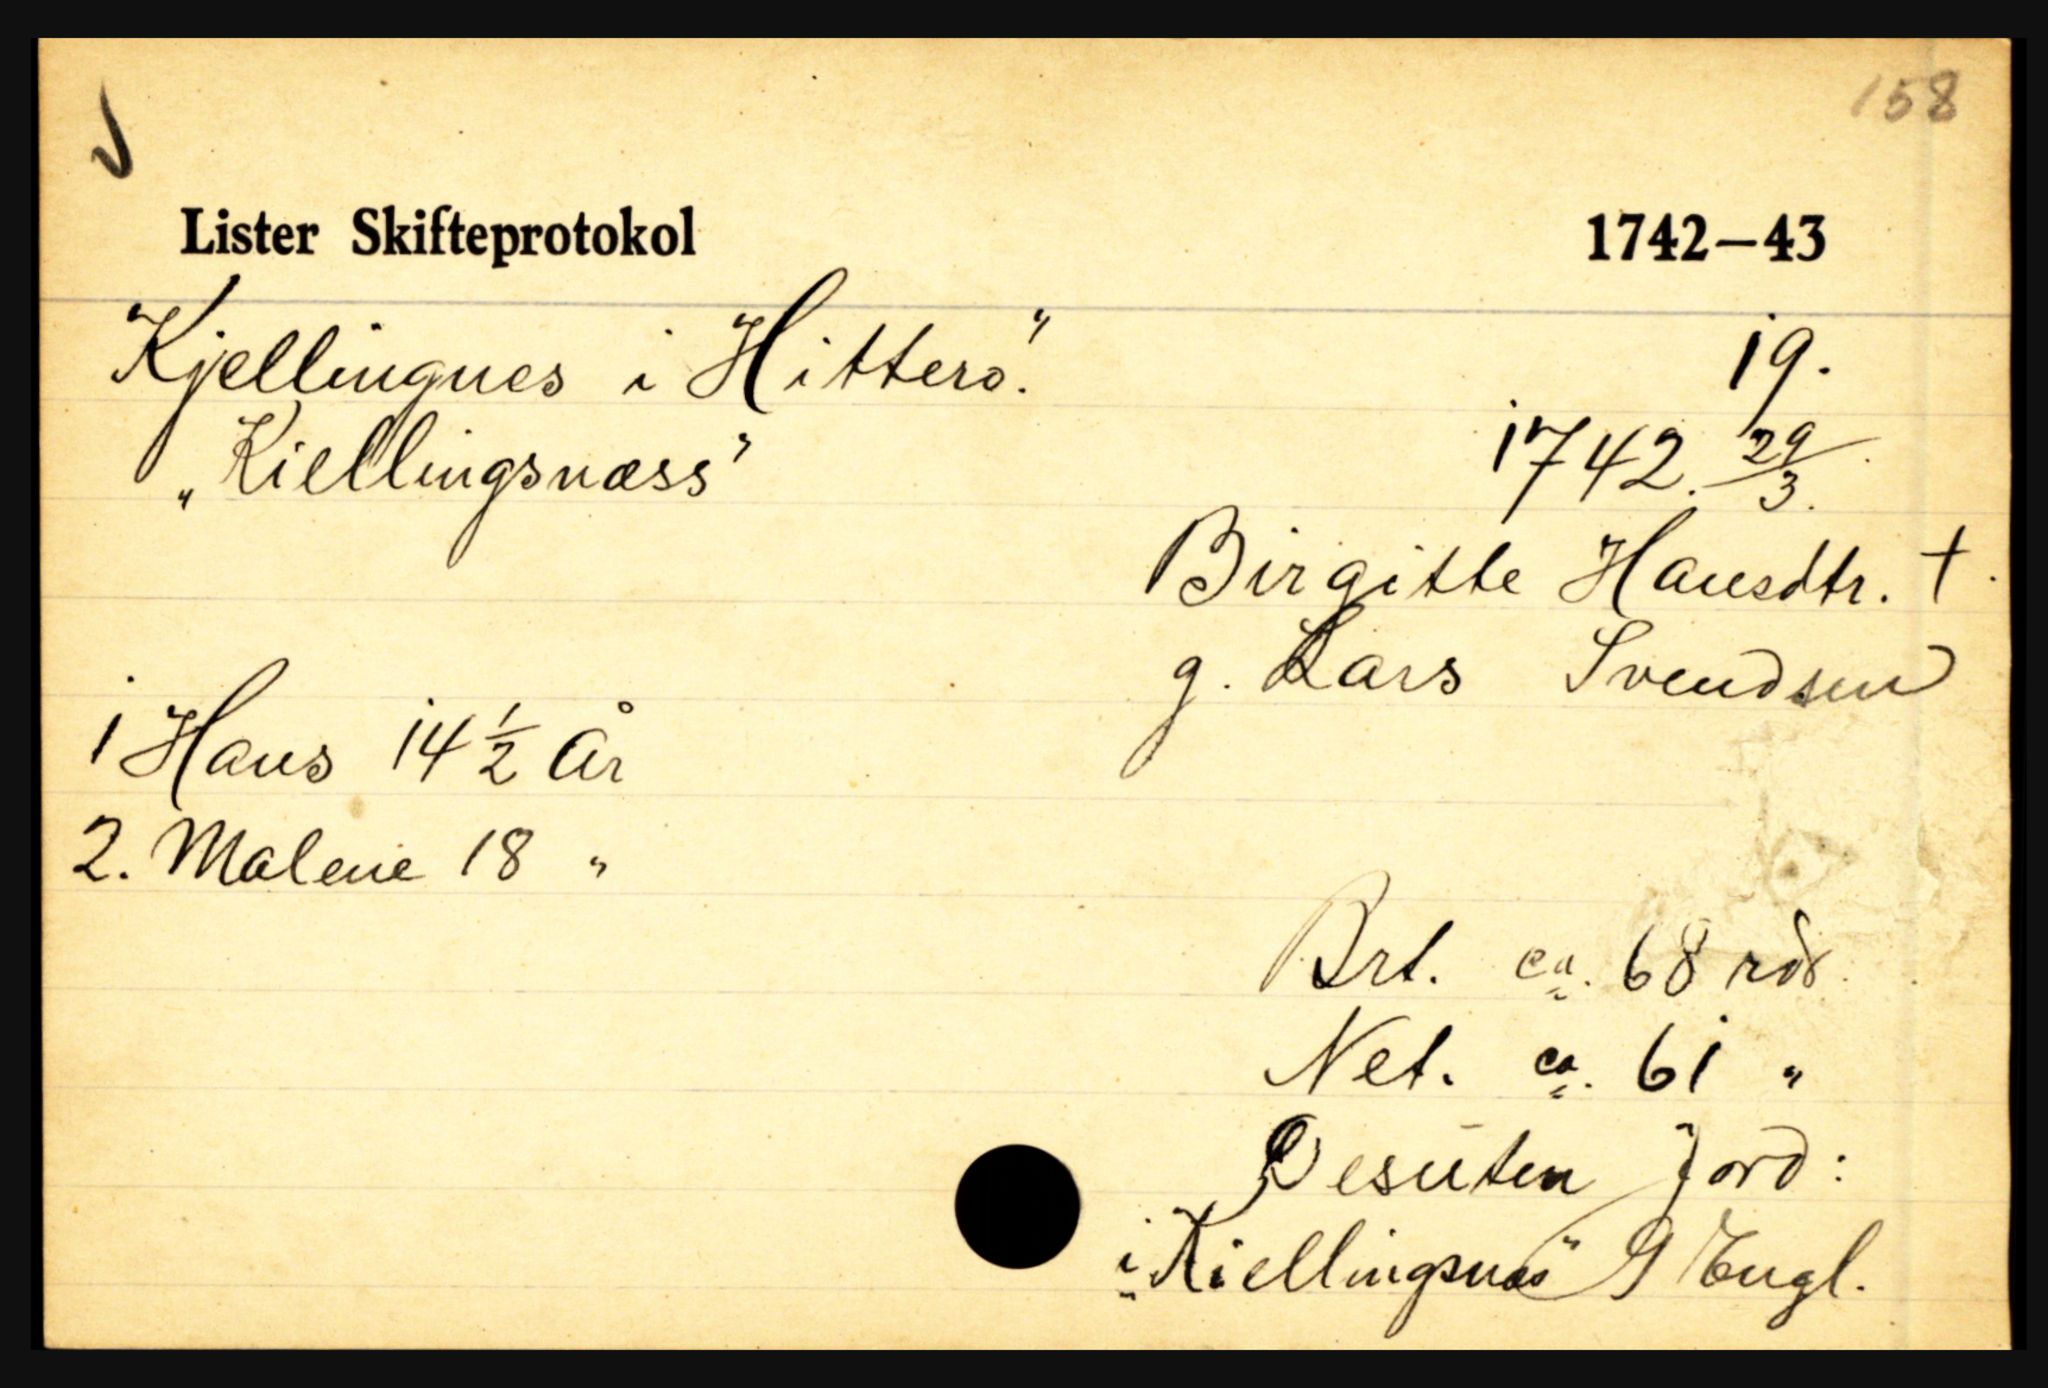 158
Lister Skifteprotokol 1742–43
Kjellingnes i Hitterø." 19.
„Kiellingsnæss" 1742. 29/3.
Birgitte Hansdtr. †.
g. Lars Svendsen
1 Hans 14 1/2 år
2. Malene 18 "
Brt. ca. 68 rdr.
Net. ca. 61 "
Desuten Jord:
i „Kiellingsnæs" 9 Engl.